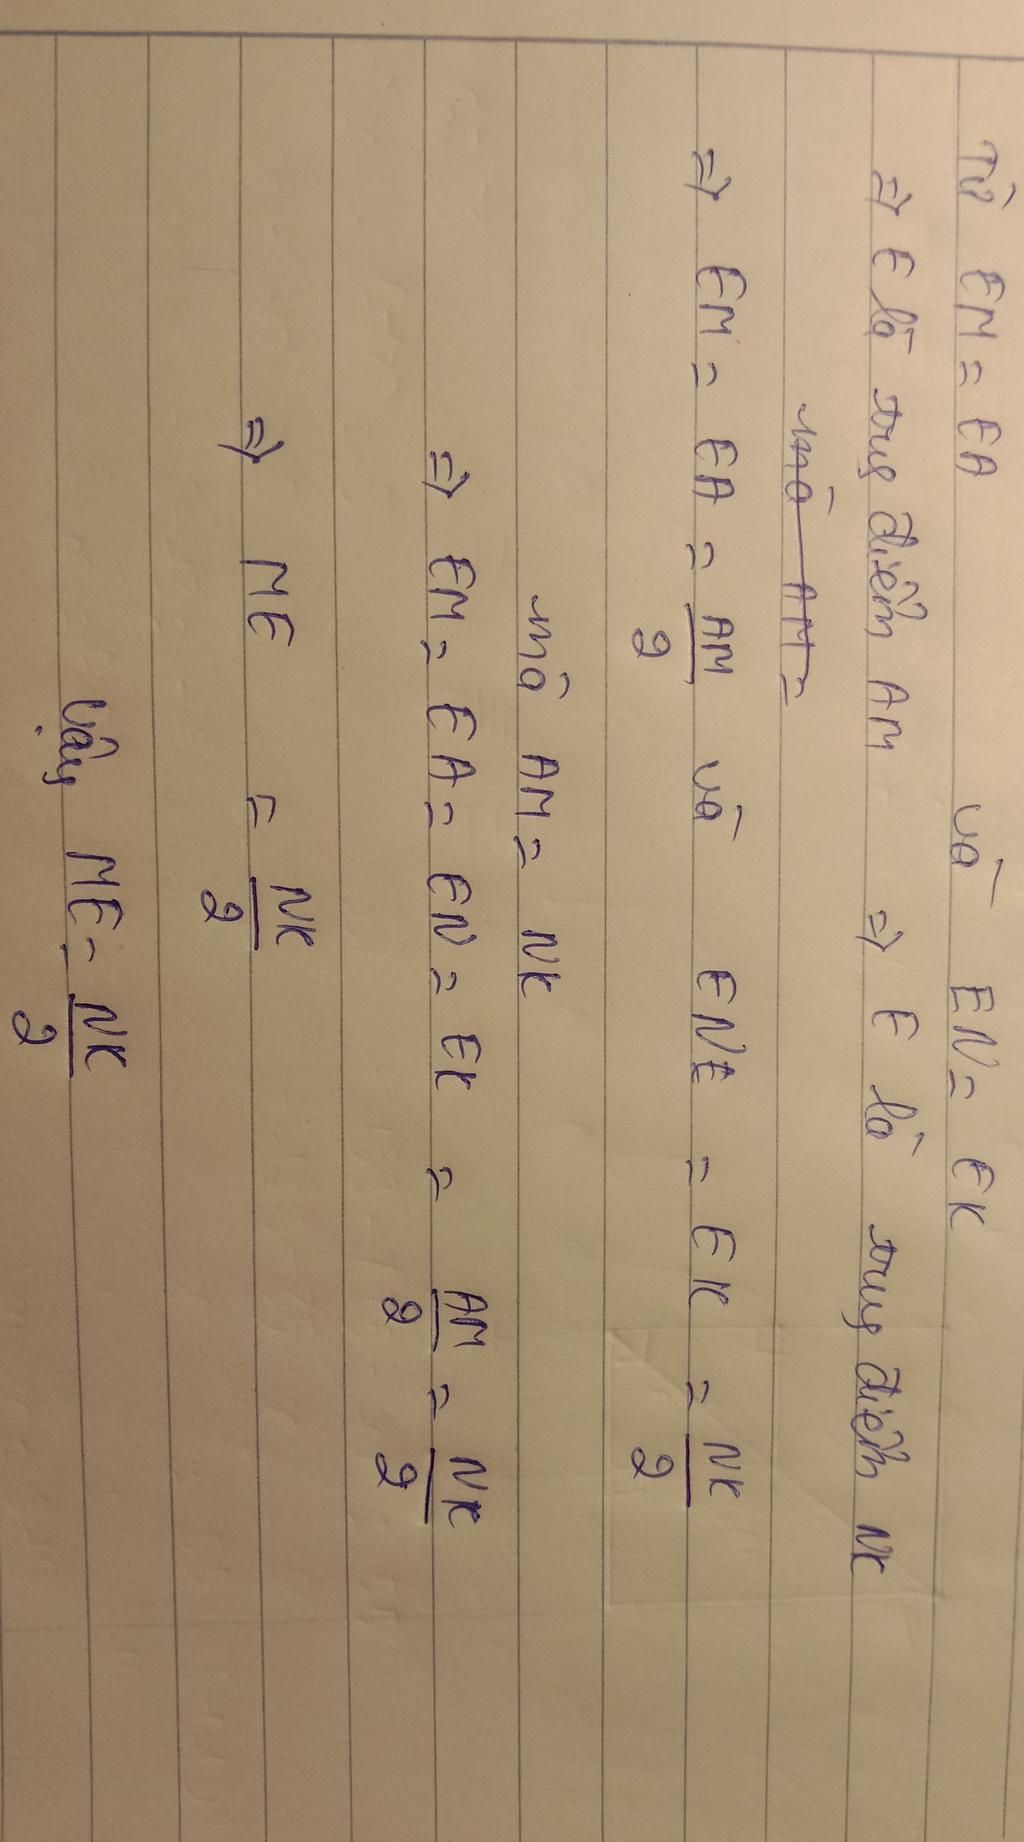 Từ EM = EA và EN = EK
=> E là trung điểm AM => E là trung điểm NK
mà AM =
=> EM = EA = AM/2 và EN = EK = NK/2
mà AM = NK
=> EM = EA = EN = EK = AM/2 = NK/2
=> ME = NK/2
Vậy ME = NK/2